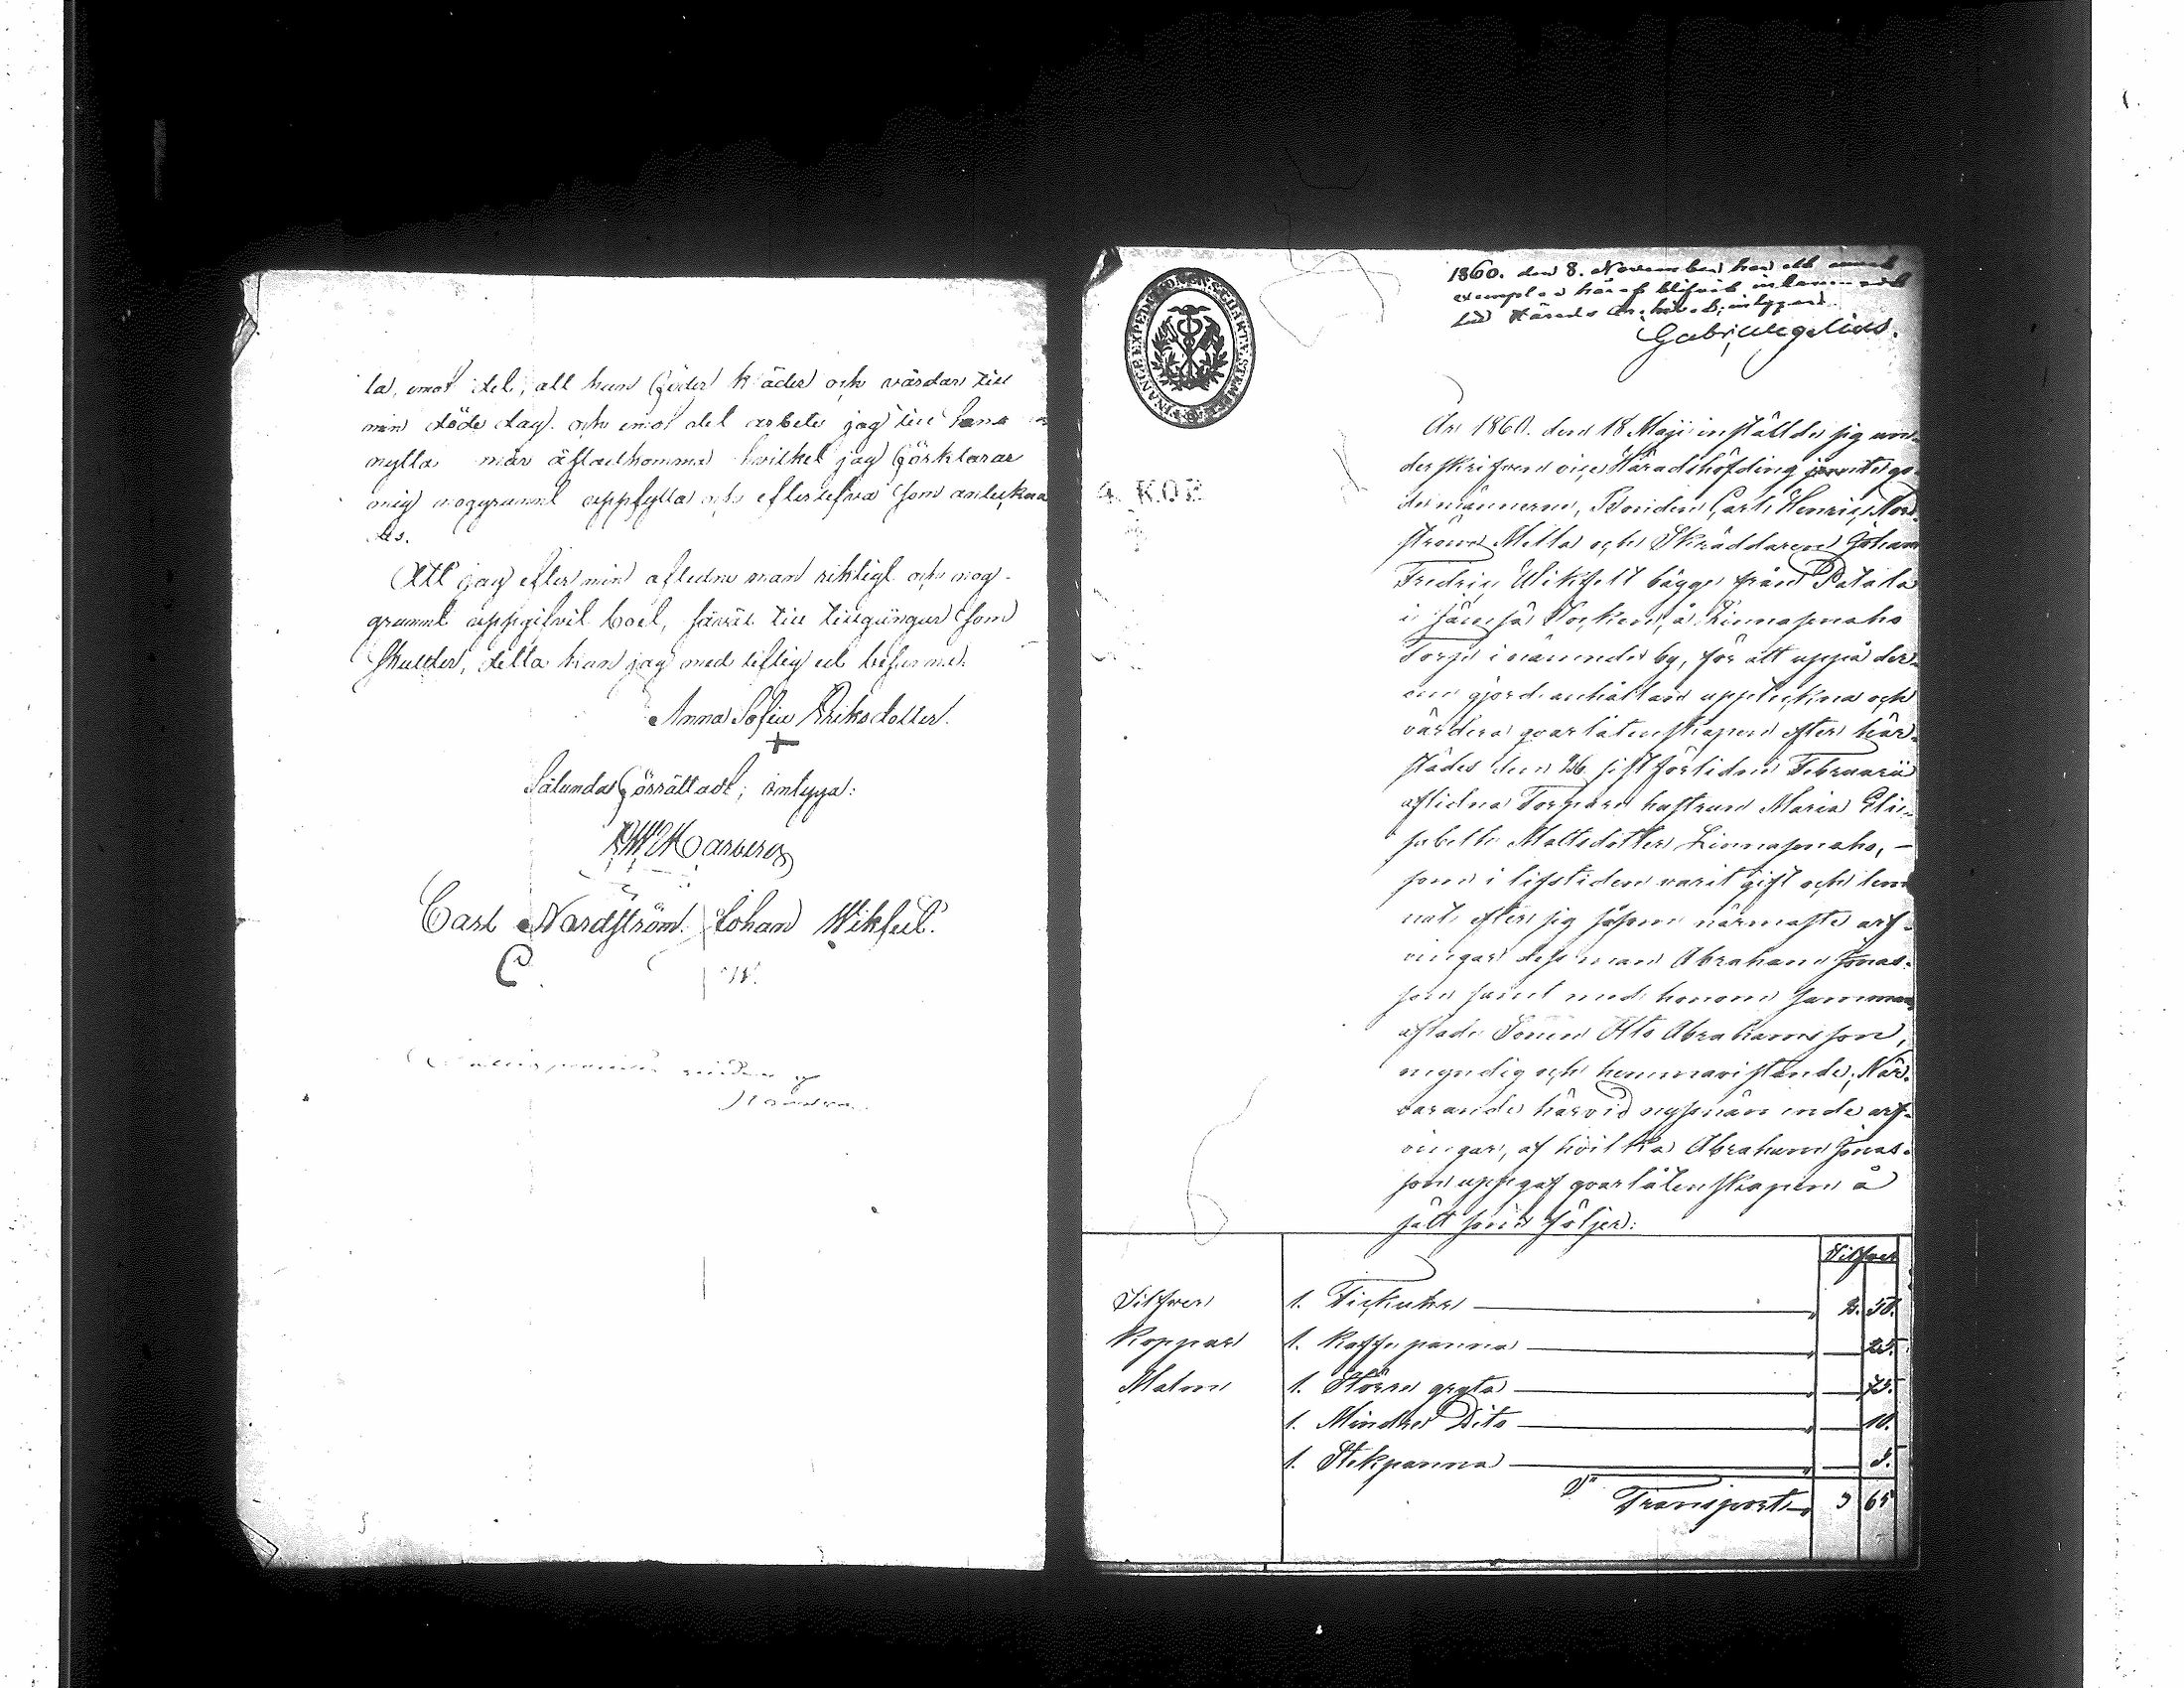 la, emot det, att han föder kläder och vårdar till
min döde dag. och emot det arbete jag till hans
nytta mär åstadkomma hvilket jag förklarar
mig noggrannt uppfylla och efterlefva som anteckna
des.
Att jag efter min aflidne man riktigt och nog-
grannt uppgifvit boet, såväl till tillgångar som
skulder, detta kan jag med liflig ed besanna.
Anna Sofia Eriksdotter.
Sålunda förrättadt; intyga:
Carl Nordström. Johan Wikfelt.
C
1860. den 8. November har ett
exemplar häraf blifvit
Härads
År 1860. den 18 Maji inställde sig un-
derskrifven vice Häradshöfding jemte go-
de männerne, Bonden Carl Henric Nord-
ström Mella och Skräddaren Johan
Fredric Wikfelt bägge från Patala
i Jämsä Socken, å Linnasenaho
Torp i nämnde by, för att uppå der-
om gjord anhållan uppteckna och
värdera qvarlåtenskapen efter här-
städes den 26 sistförliden Februarii
aflidna Torpare hustrun Maria Eli-
sabeth Mattsdotter Linnasenaho, —
som i lifstiden varit gift och lem
nat efter sig såsom närmaste arf-
vingar dess man Abraham Jonas-
son samt med honom samman
aflade Sonen Otto Abrahamsson,
myndig och hemmavistande; När-
varande härvid nyssnämnde arf-
vingar, af hvilka Abraham Jonas-
son uppgaf qvarlåtenskapen å
sätt som följer:
Silfver
Silfver 1. Fickuhr 2. 50.
Koppar 1. Kaffepanna 25.
Malm 1. Större gryta 75.
1. Mindre Dito 10.
1. Stekpanna 5.
Transport 3 65